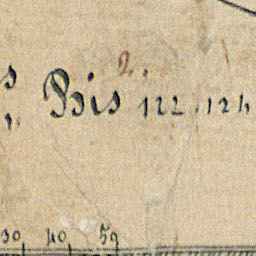 2.
Bis 122.124
30 40 50